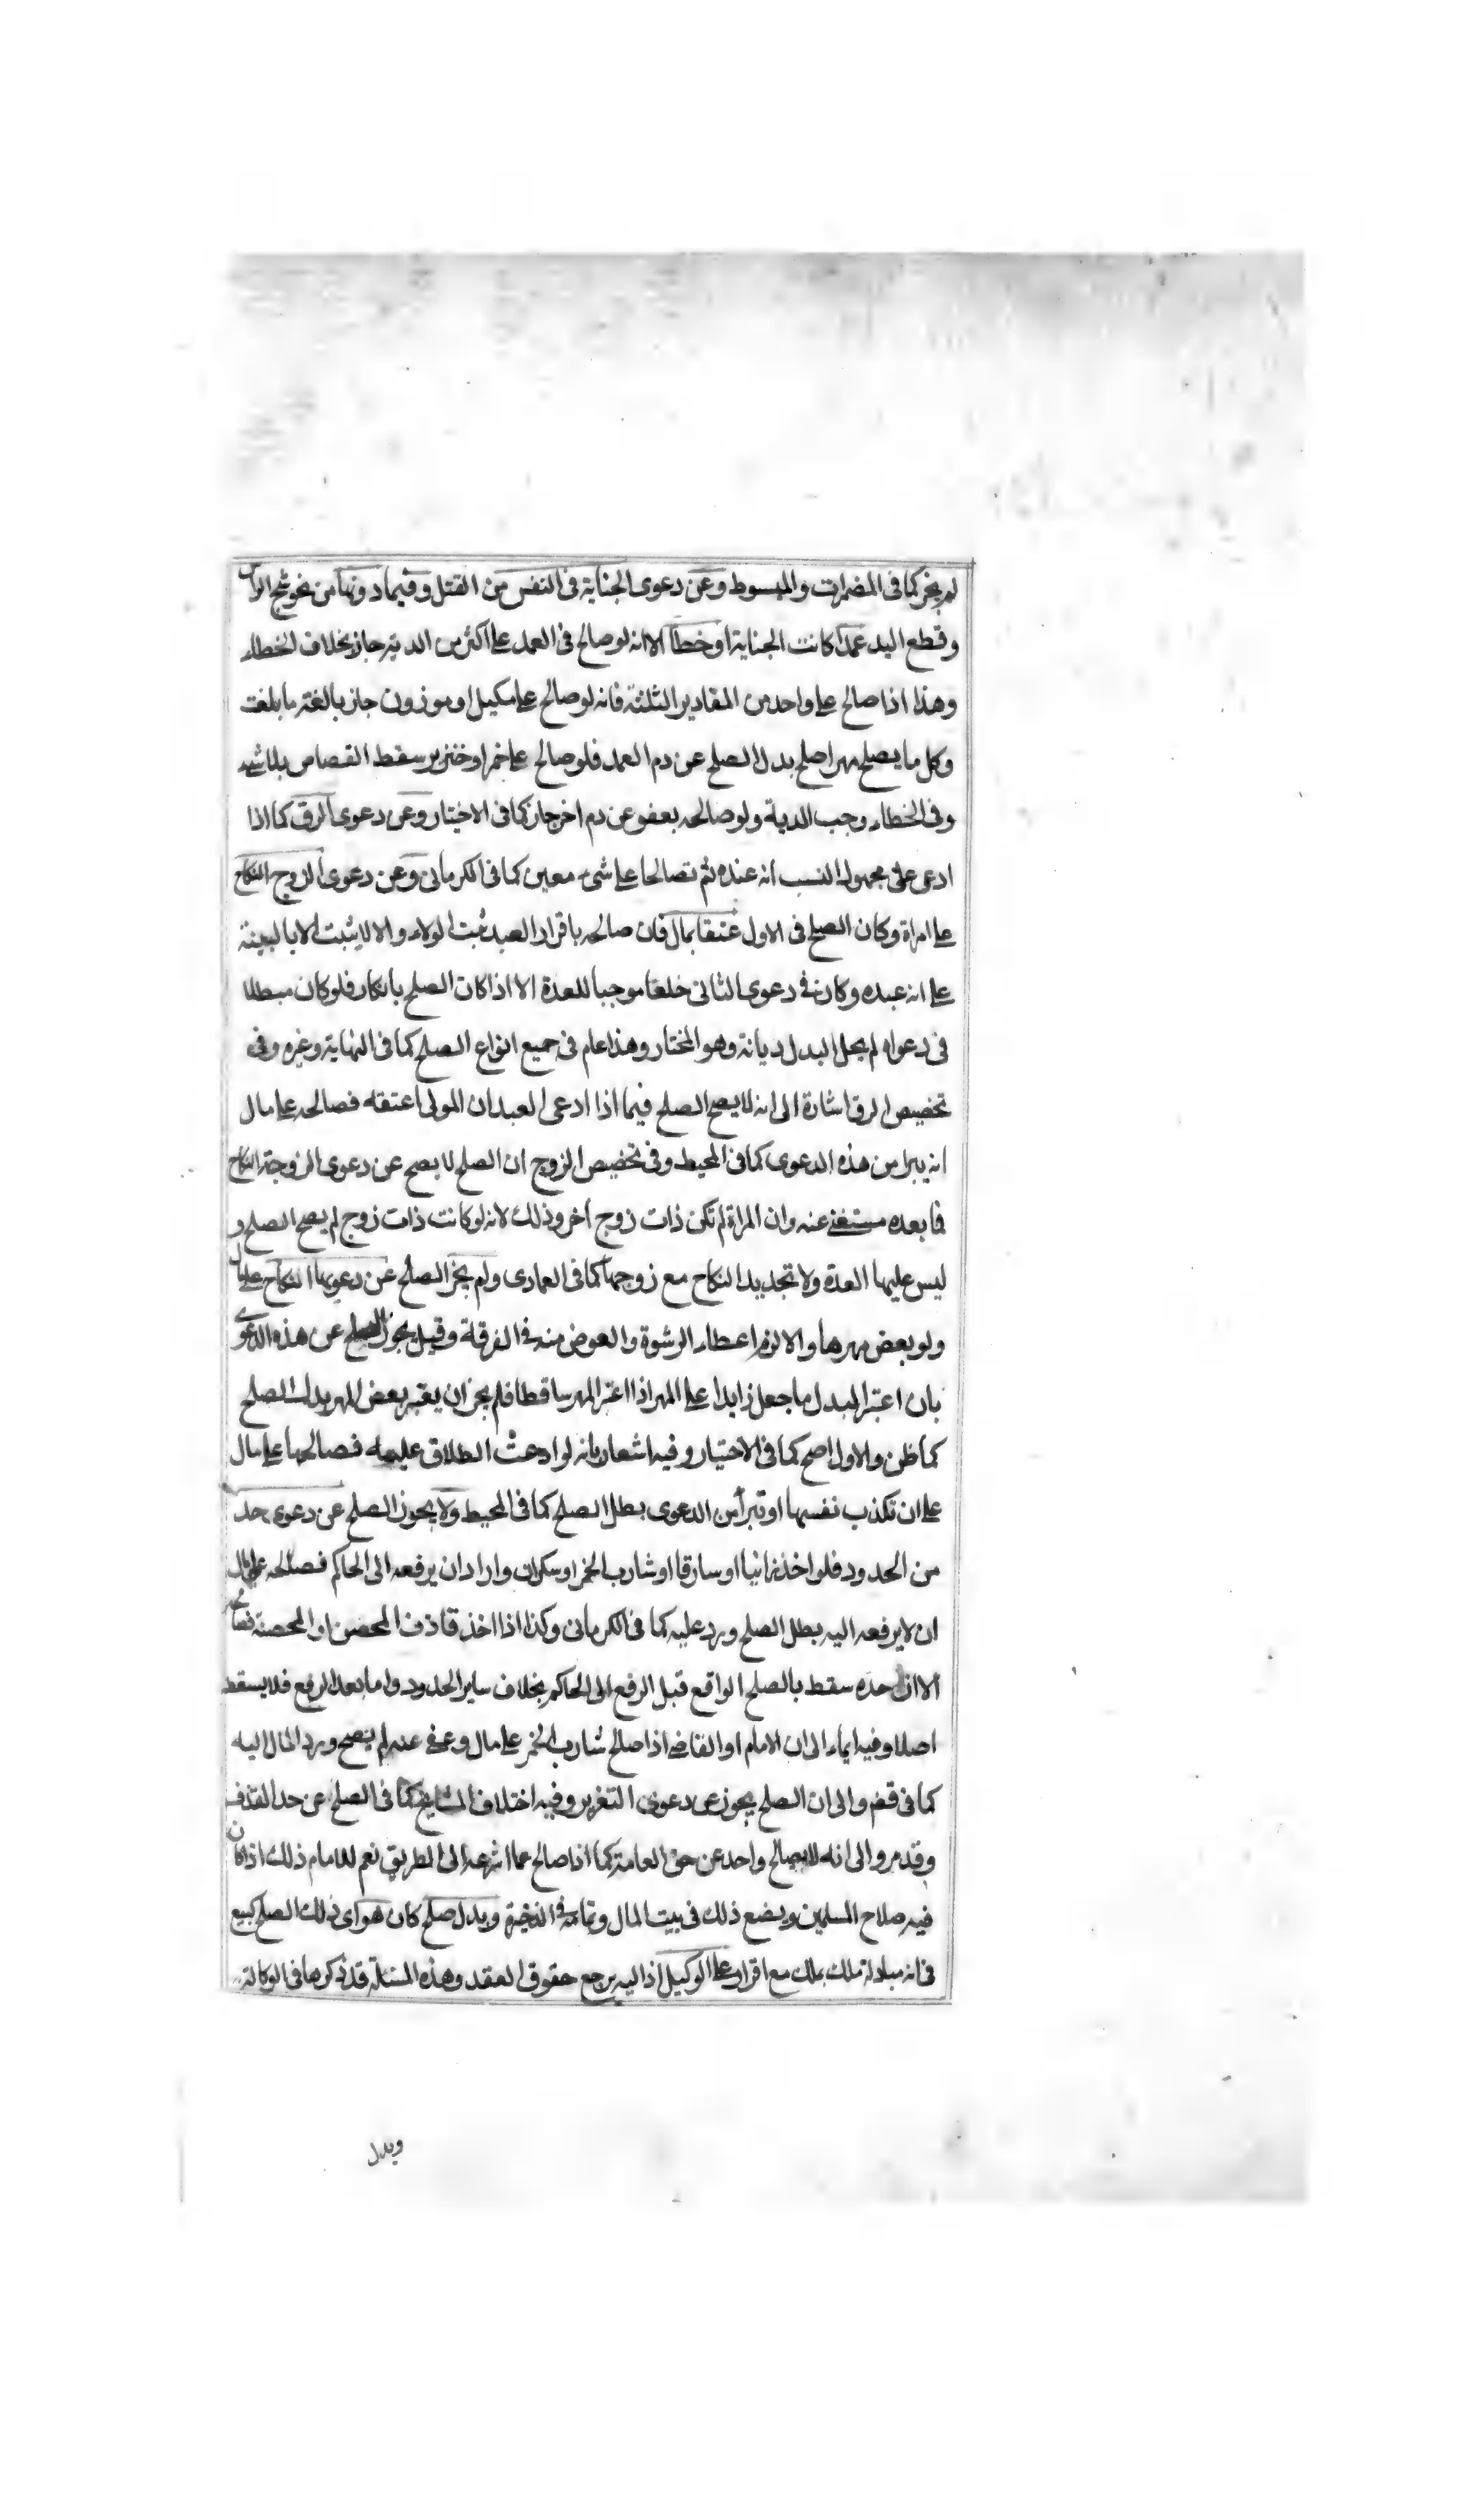 لم يجز كما في المضمرات والمبسوط وعن دعوى الجناية في النفس من القتل وفيما دونها من نحو شج الراس
وقطع اليد عمدا كانت الجناية او خطأ الا انه لو صالح في العمد على اكثر من الدية جاز بخلاف الخطاء
وهذا اذا صالح على واحد من المقادير الثلثة فانه لو صالح على مكيل او موزون جاز بالغة ما بلغت
وكل ما يصلح مهرا صلح بدل الصلح عن دم العمد فلو صالح على خمر او خنزير سقط القصاص بلا شيء
وفي الخطاء وجب الدية ولو صالحه بعفو عن دم اخر جاز كما في الاختيار وعن دعوى الرق كما اذا
ادعى على مجهول النسب انه عنده ثم تصالحا على شيء معين كما في الكرماني وعن دعوى الزوج النكاح
على امراة وكان الصلح في الاول عتقا بمال فان صالحه باقرار العبد ثبت الولاء والا لا يثبت الا بالبينة
على انه عبده وكان في دعوى الثاني خلعا موجبا للعدة الا اذا كان الصلح بانكار فلو كان مبطلا
في دعواه لم يحل البدل ديانة وهو المختار وهذا عام في جميع انواع الصلح كما في النهاية وغيره وفي
تخصيص الرق اشارة الى انه لا يصح الصلح فيما اذا ادعى العبد ان المولى اعتقه فصالحه على مال
انه يبرا من هذه الدعوى كما في المحيط وفي تخصيص الزوج ان الصلح لا يصح عن دعوى الزوجة النكاح
فما بعده مستغنى عنه وان المراة لم تكن ذات زوج اخر وذلك لانه لو كانت ذات زوج لم يصح الصلح و
ليس عليها العدة ولا تجديد النكاح مع زوجها كما في العمادى ولم يجز الصلح عن دعويها النكاح على مال
ولو بعض مهرها والا لزم اعطاء الرشوة والعوض منه في الفرقة وقيل يجوز الصلح عن هذه الدعوى
بان اعتبر البدل ما جعل زايدا على المهر اذا اعتبر المهر ساقطا فلم يجز ان يعتبر بعض المهر بدل الصلح
كما ظن والاول اصح كما في الاختيار وفيه اشعار بانه لو ادعت الطلاق عليه فصالحها على مال
على ان تكذب نفسها او تبرأ من الدعوى بطل الصلح كما في المحيط ولا يجوز الصلح عن دعوى حد
من الحدود فلو اخذ زانيا او سارقا او شارب الخمر او سكران واراد ان يرفعه الى الحاكم فصالحه على مال
ان لا يرفعه اليه بطل الصلح ورد عليه كما في الكرماني وكذا اذا اخذ قاذف المحصن او المحصنة فصالحه
الا ان حده سقط بالصلح الواقع قبل الرفع الى الحاكم بخلاف ساير الحدود واما بعد الرفع فلا يسقط
اصلا وفيه ايماء الى ان الامام او القاضي اذا صالح شارب الخمر على مال وعفى عنه لم يصح ورد المال اليه
كما في والى ان الصلح يجوز عن دعوى التعزير وفيه اختلاف المشايخ كما في الصلح عن حد القذف
وقد مر والى انه لا يصالح واحد عن حق العامة كما اذا صالح عما اشرعه الى الطريق نعم للامام ذلك اذا كان
فيه صلاح المسلمين ويضع ذلك في بيت المال وتمامه في الذخيرة وبدل صلح كان هو اى ذلك الصلح كبيع
في انه مبادلة ملك بملك مع اقرار على الوكيل اذ اليه يرجع حقوق العقد وهذه المسئلة قد ذكرها في الوكالة
وبدل